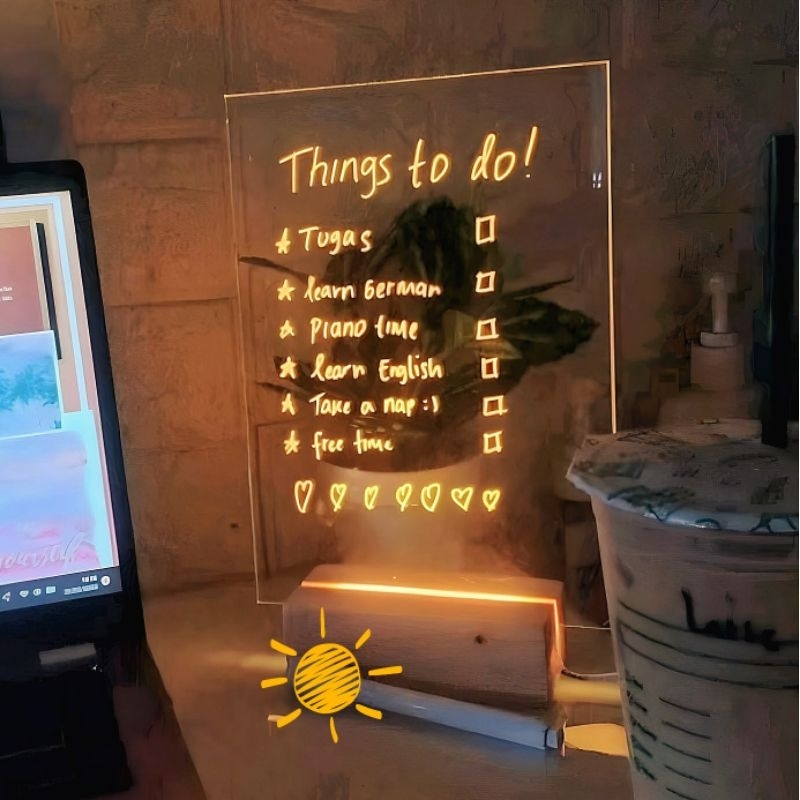 Things to do!
Tugas
learn German
Piano time
learn English
Take a nap :)
free time